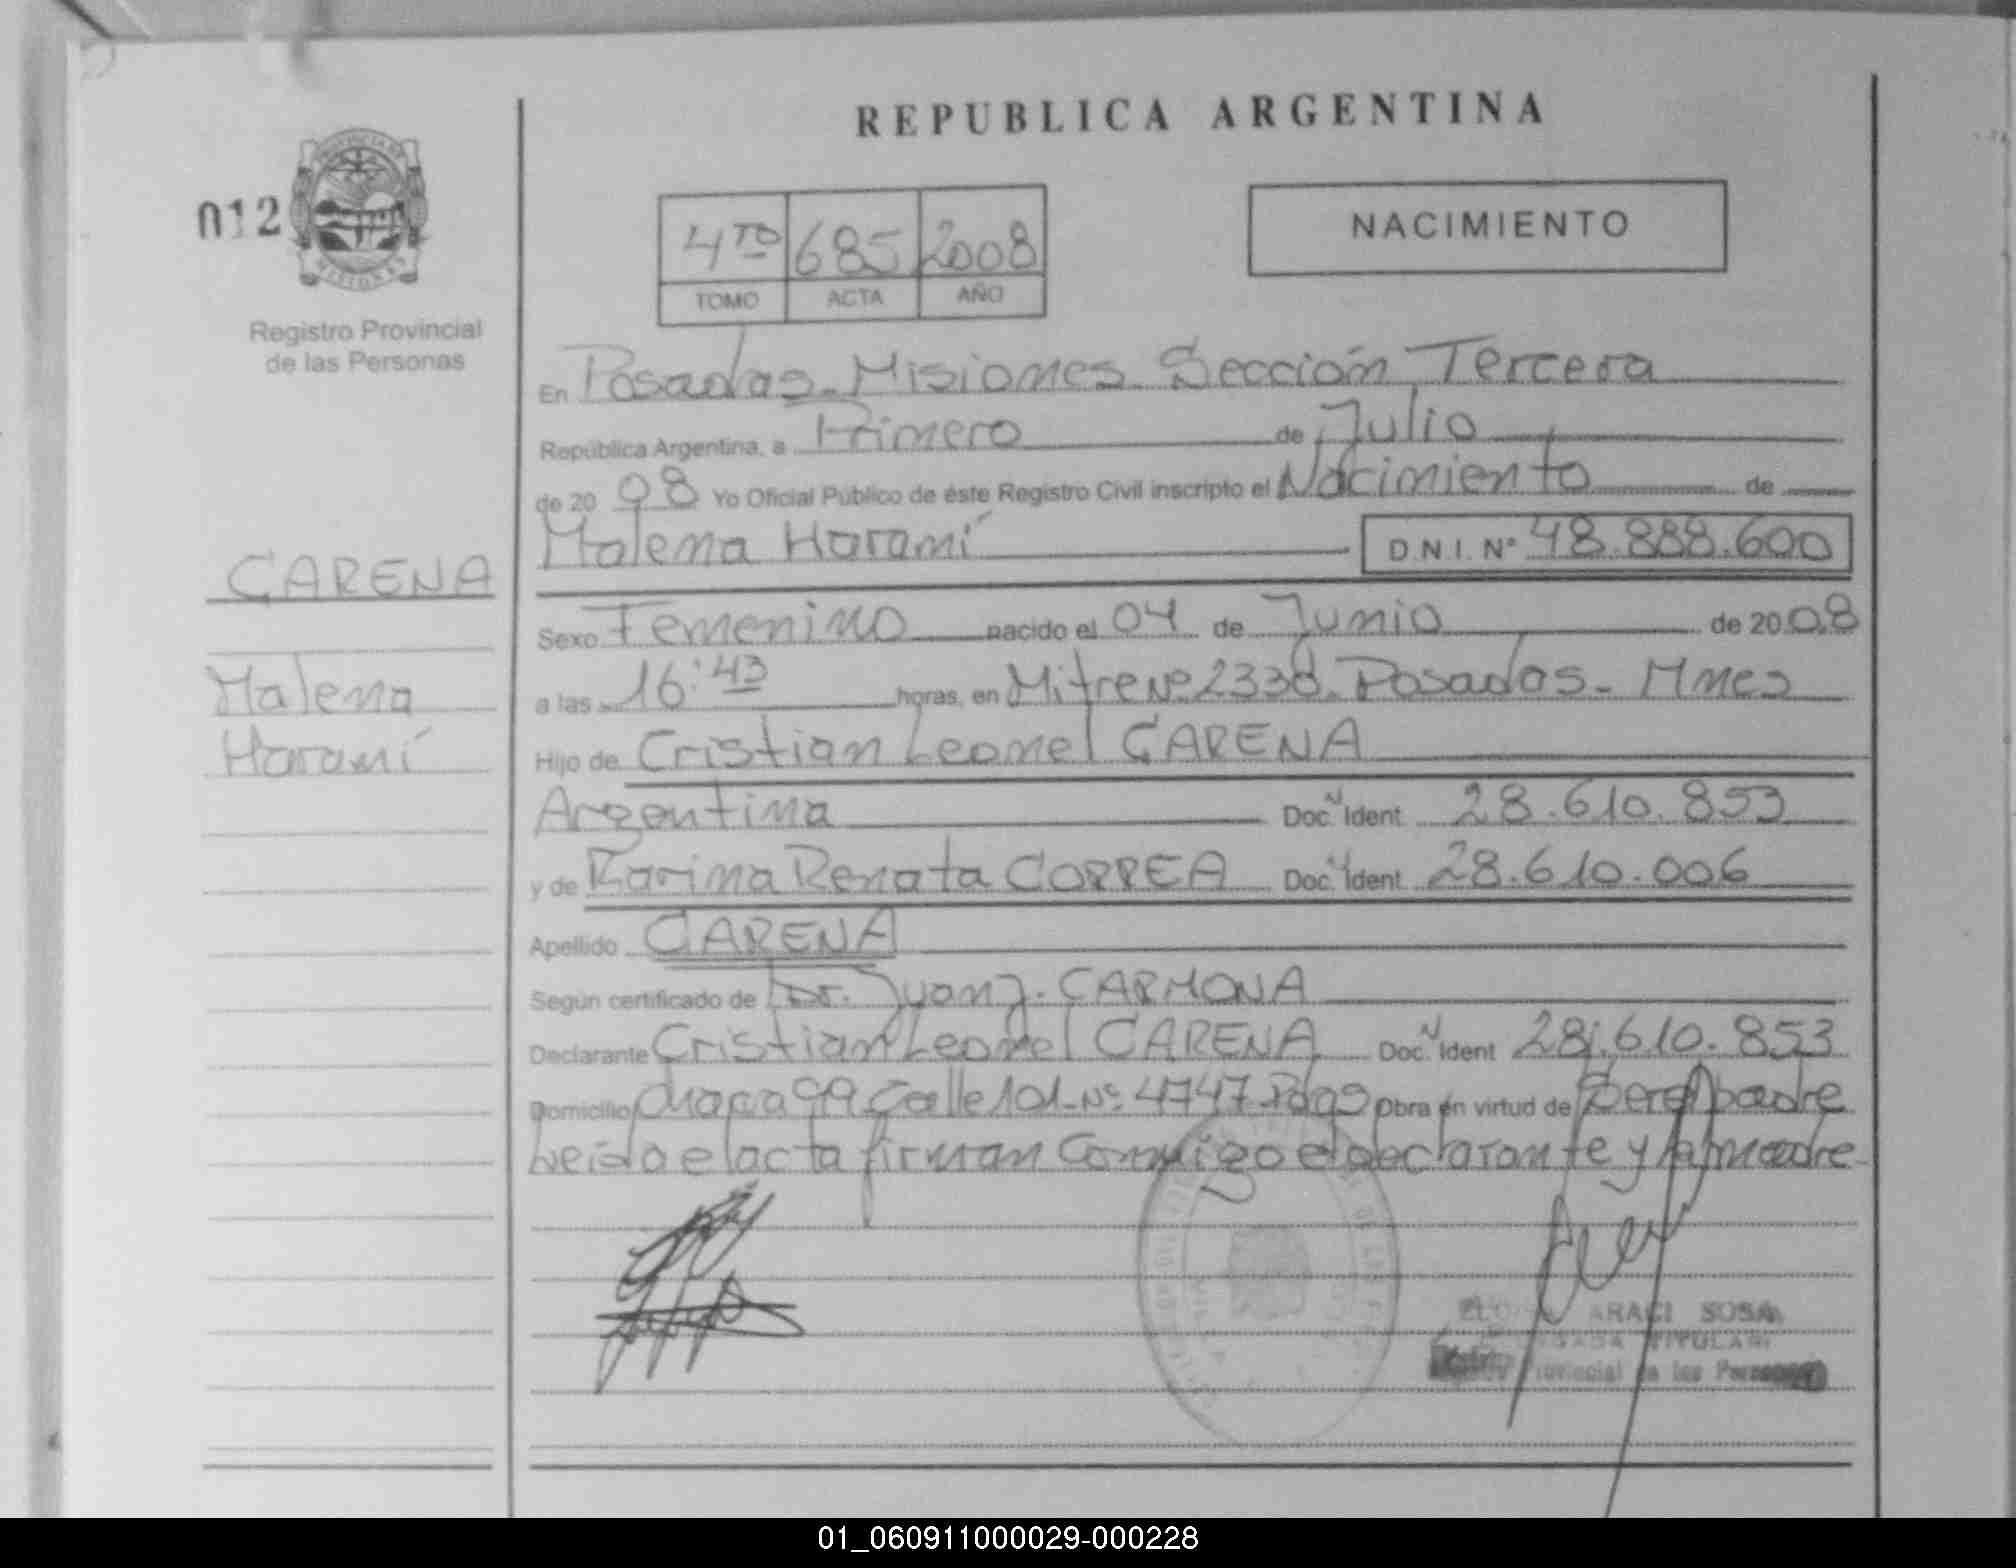 REPUBLICA ARGENTINA
012
4TO 685 2008
TOMO ACTA AÑO
NACIMIENTO
Registro Provincial
de las Personas
En Posadas - Misiones Sección Tercera
República Argentina, a Primero de Julio
de 2008 Yo Oficial Público de éste Registro Civil inscripto el Nacimiento de
Malena Haramí D.N.I. Nº 48.888.600
CARENA
Malena
Haramí
Sexo Femenino nacido el 04 de Junio de 2008
a las 16:43 horas, en Mitre Nº 2338 Posadas - Mnes
Hijo de Cristian Leonel CARENA
Argentina Doc. N Ident 28.610.853
y de Karina Renata CORREA Doc. N Ident 28.610.006
Apellido CARENA
Según certificado de Dr. Juan J. CARMONA
Declarante Cristian Leonel CARENA Doc. N Ident 28.610.853
Domicilio Chacra 99 Calle 101 - Nº 4747 - Pdas Obra en virtud de Ser el padre
Leída el acta firman conmigo el declarante y la madre
ARACI SOSA
TITULAR
Provincial de las Personas
01_060911000029-000228